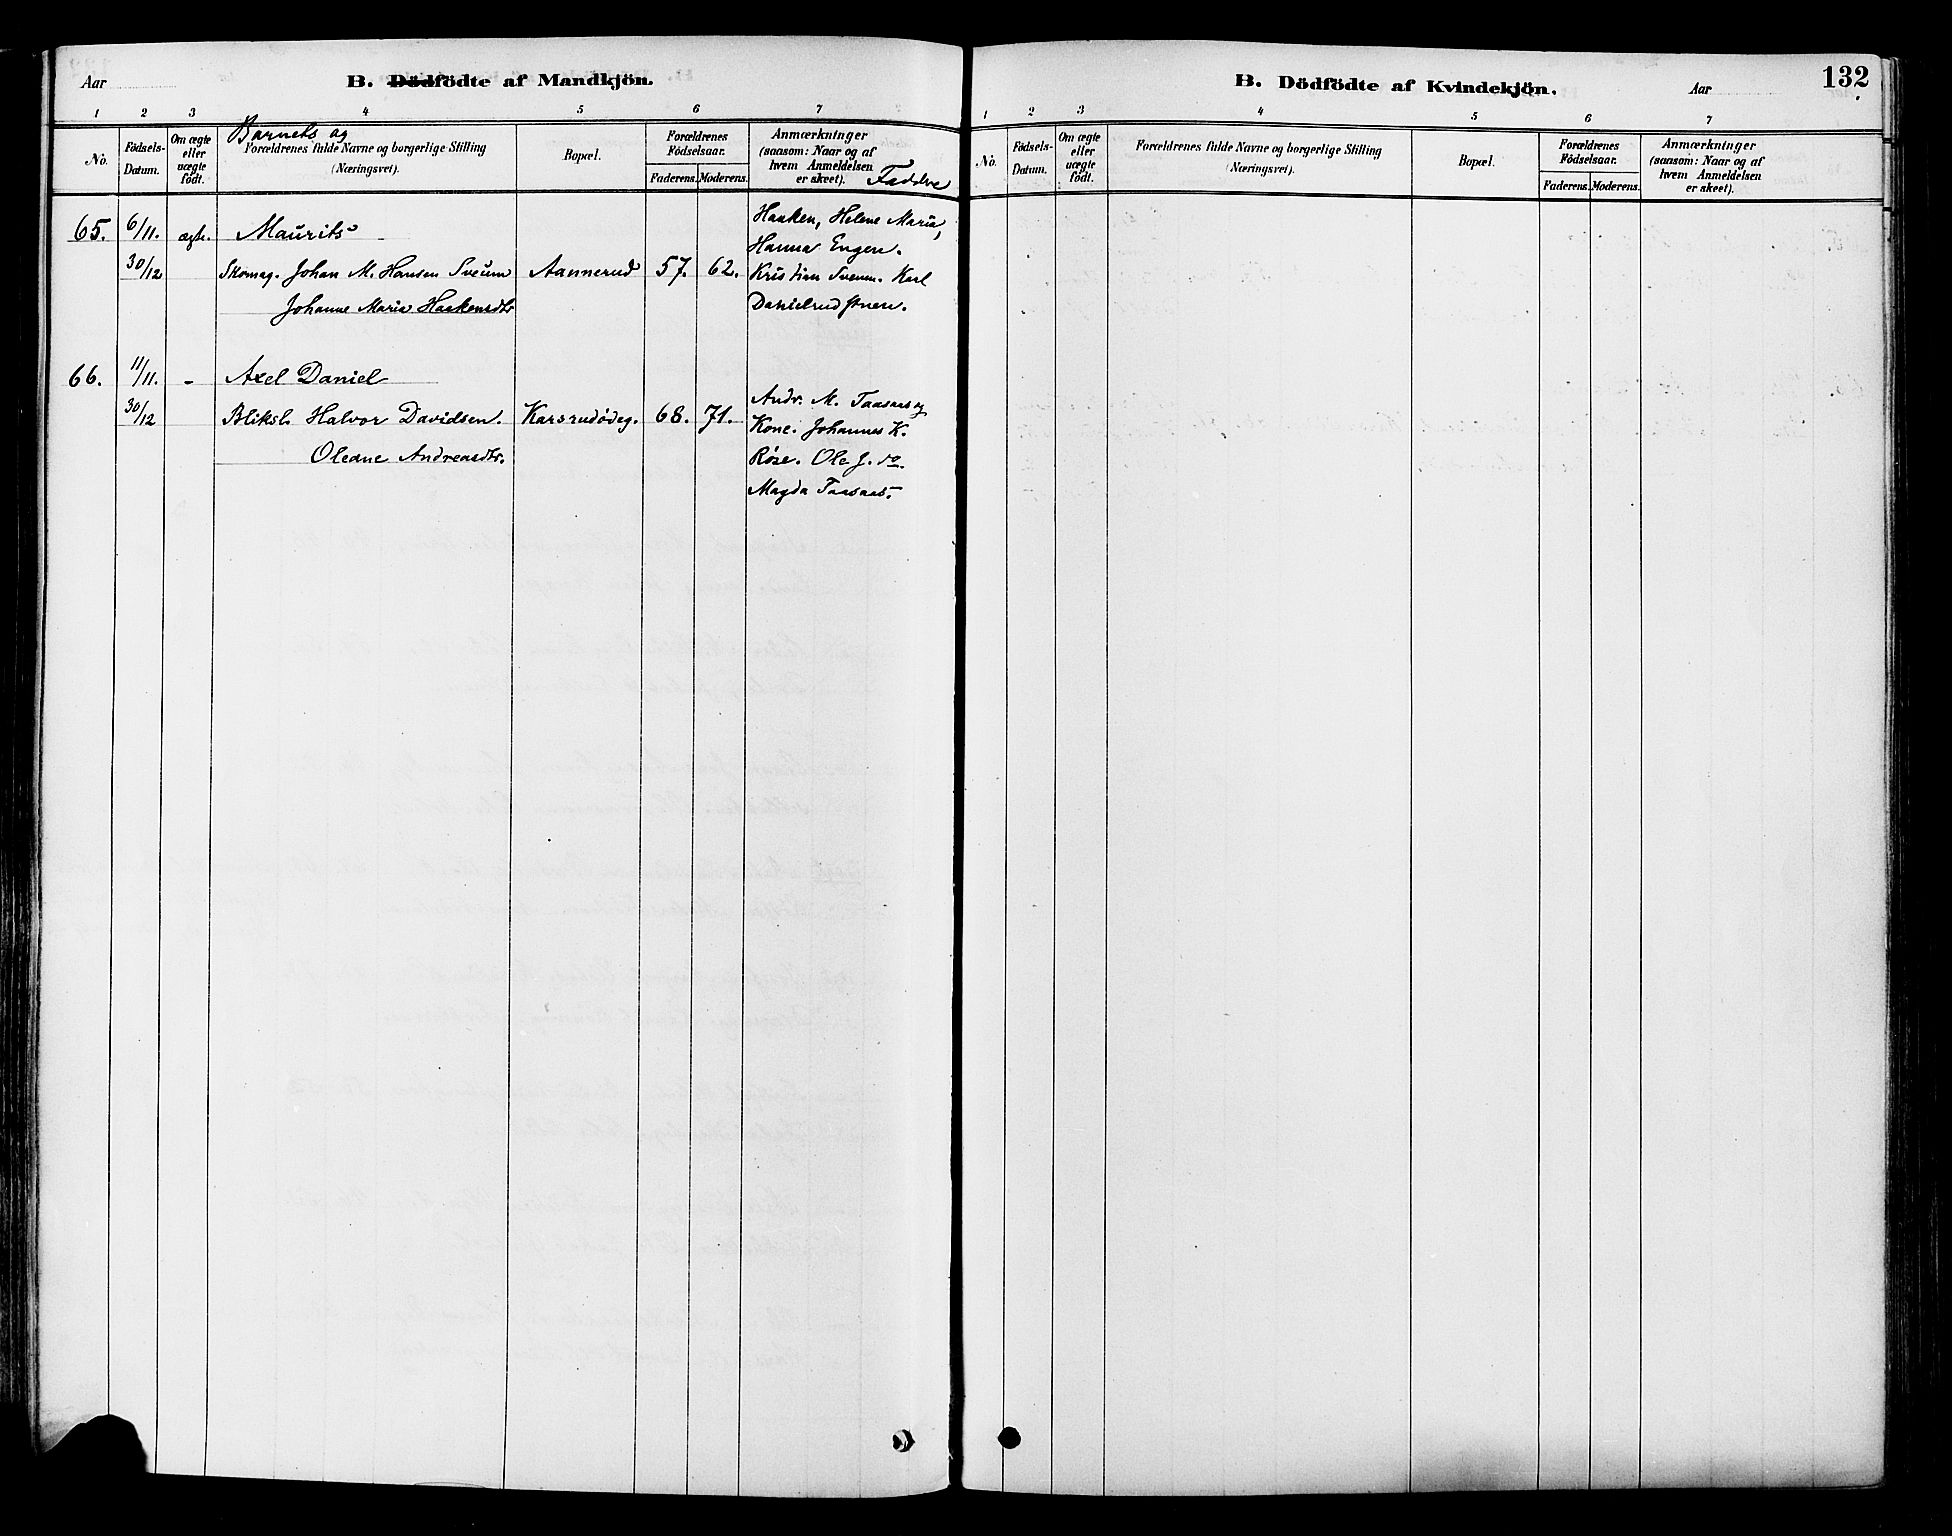 Aar
B. Dödfödte af Mandkjön.
1 2 3 4 5 6 7
No.
Födsels-
Datum.
Om ægte
eller
uægte
födt.
Barnets og
Forældrenes fulde Navne og borgerlige Stilling
(Næringsvei).
Bopæl.
Forældrenes
Födselsaar.
Faderens. Moderens.
Anmærkninger
(saasom: Naar og af
hvem Anmeldelsen
er skeet). Faddre
65. 6/11. ægte. Maurits
30/12 Skomag. Johan M. Hansen Sveum Aannerud 57. 62.
Johanne Maria Haakensdtr
Haaken, Helene Maria,
Hanna Engen.
Kristian Sveum. Karl
Danielrud
66. 11/11. - Axel Daniel
30/12 Bliksl. Halvor Davidsen. Karsrudødeg. 68. 71.
Oleane Andreasdtr.
Andr. M. Taasaas og
Kone. Johannes K.
Røse. Ole J. do.
Magda Taasaas.
B. Dödfödte af Kvindekjön.
Aar
132
1 2 3 4 5 6 7
No.
Födsels-
Datum.
Om ægte
eller
uægte
födt.
Forældrenes fulde Navne og borgerlige Stilling
(Næringsvei).
Bopæl.
Forældrenes
Födselsaar.
Faderens. Moderens.
Anmærkninger
(saasom: Naar og af
hvem Anmeldelsen
er skeet).